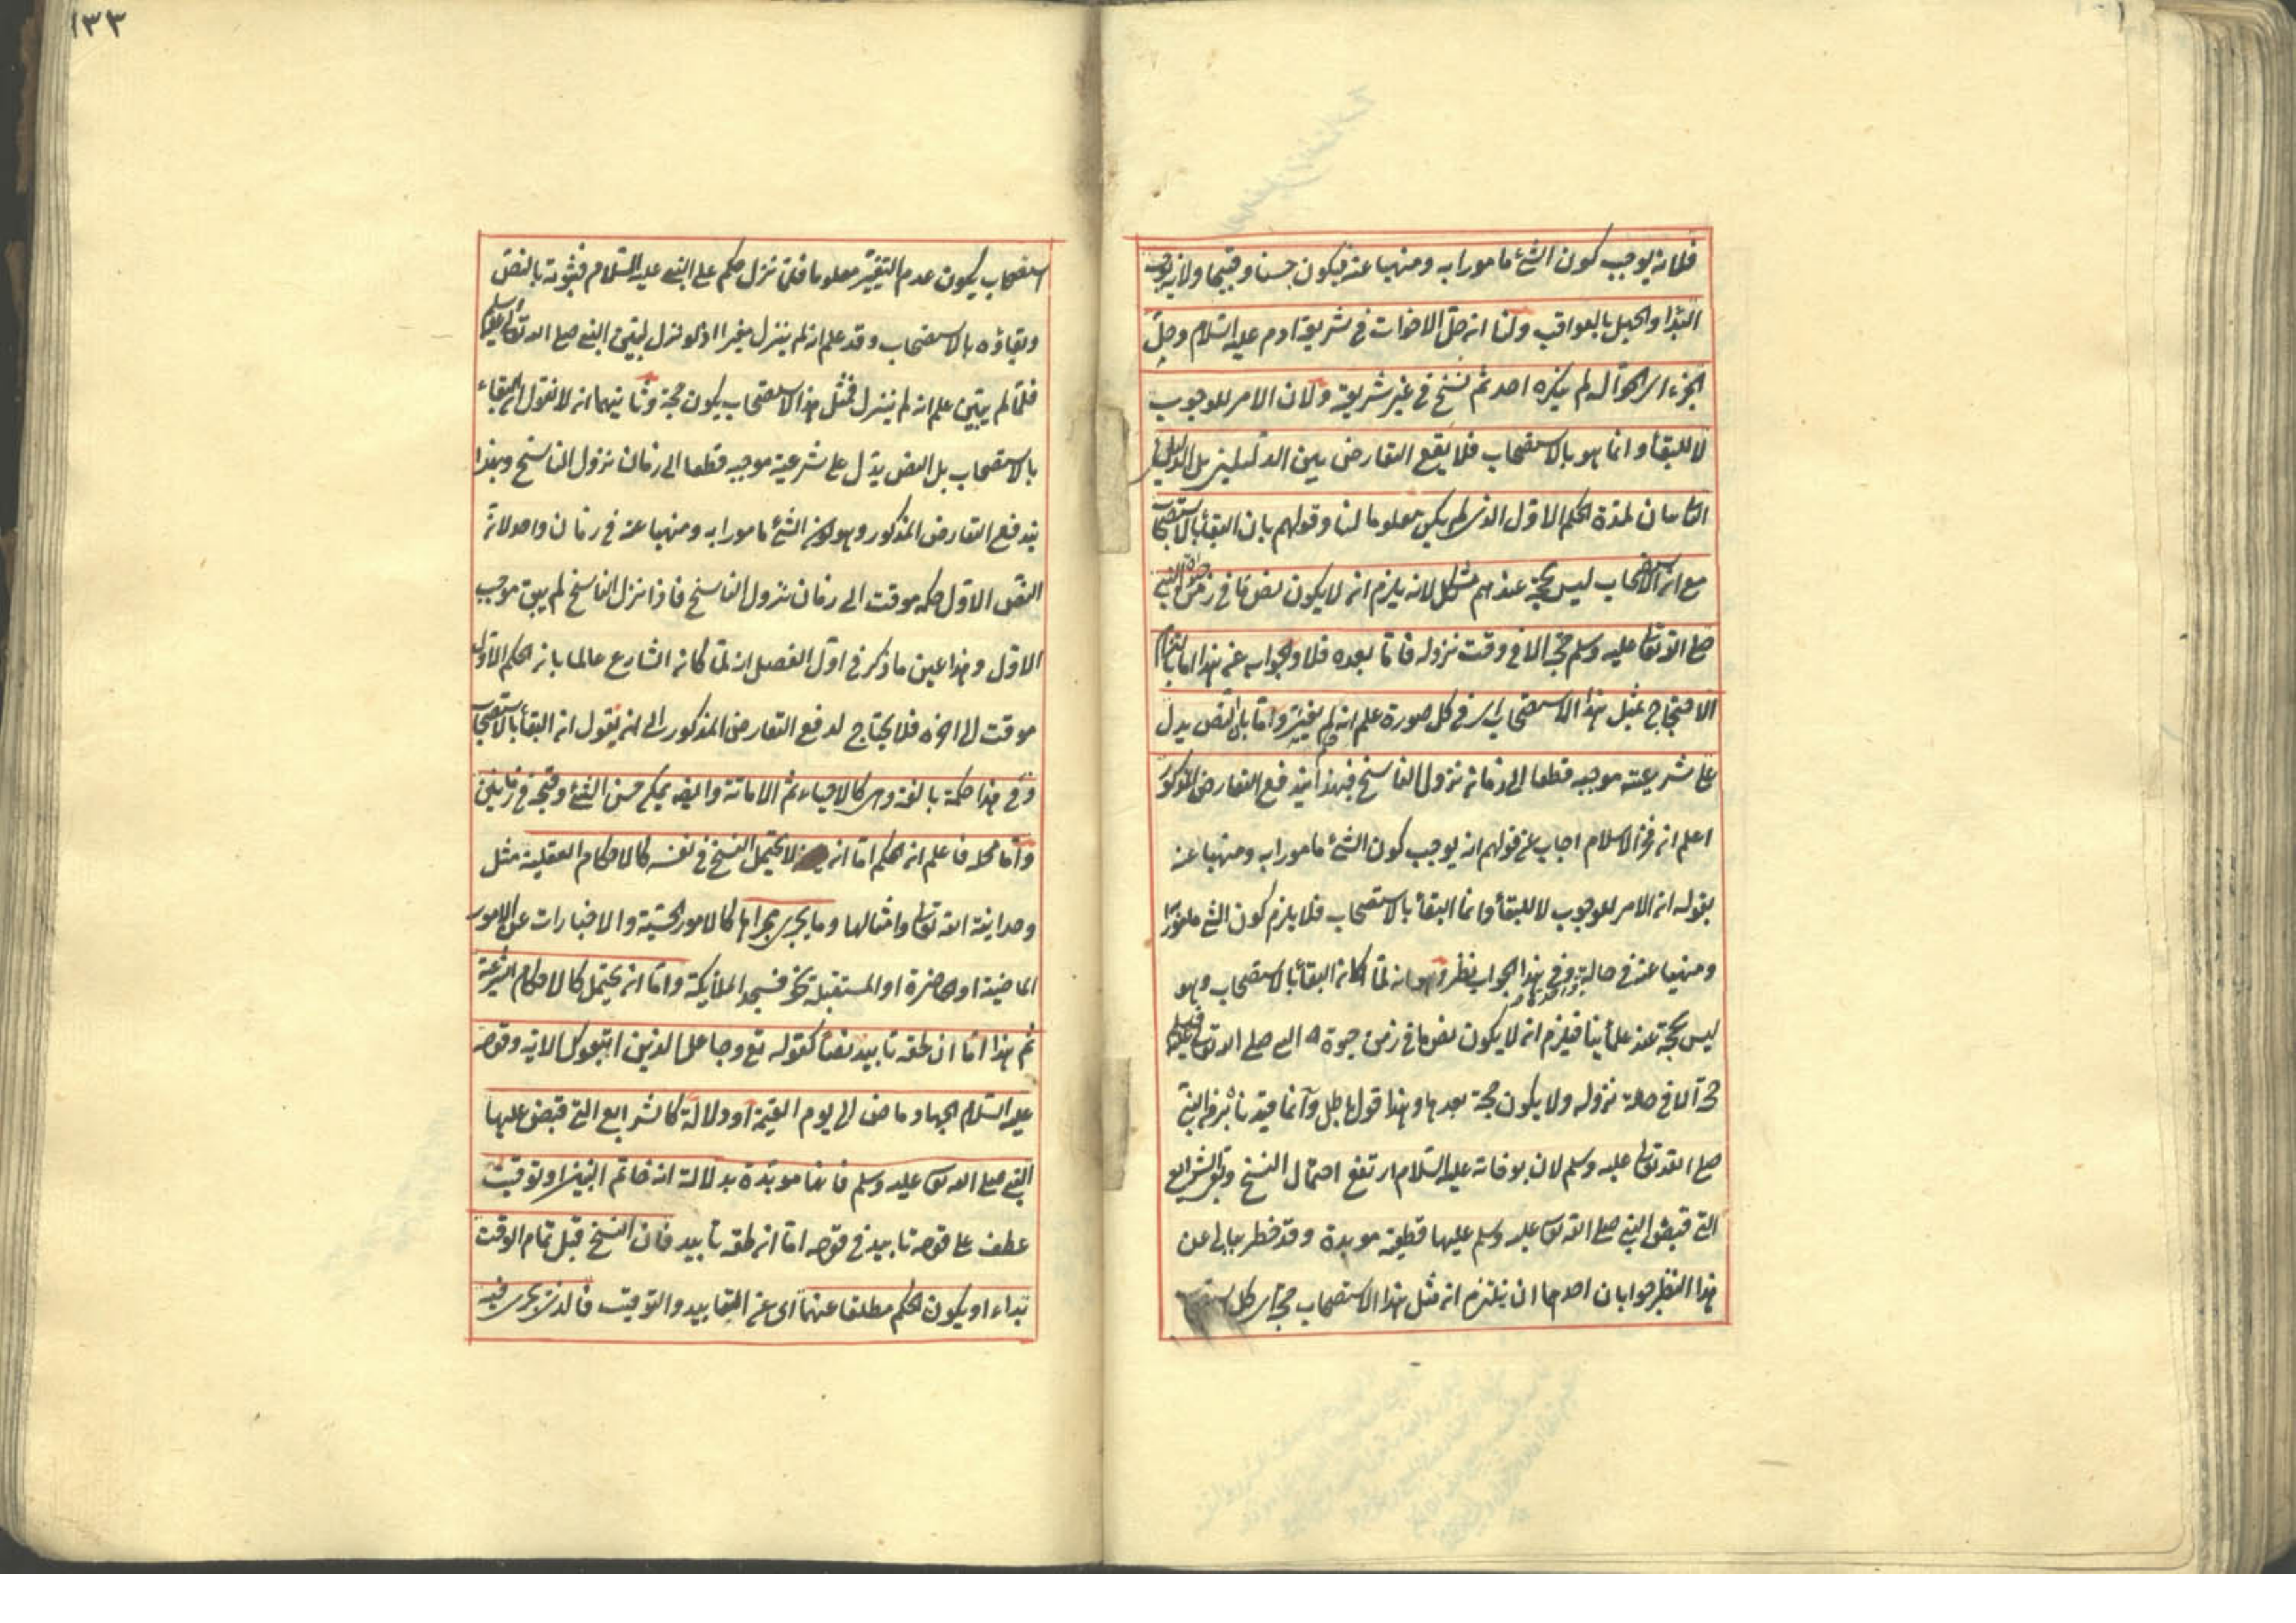 فلانه يوجب كون الشئ مامورا به ومنهيا عنه فيكون حسنا وقبيحا ولانه يوجب
البدا والجهل بالعواقب ولنا ان حل الاخوات في شريعة ادم عليه السلام وحل
الجزء اي حوا له لم ينكره احد ثم نسخ في غير شريعته ولان الامر للوجوب
لا للبقاء وانما هو بالاستصحاب فلا يقع التعارض بين الدليلين بل الدليل
الثاني بيان لمدة الحكم الاول الذي لم يكن معلوما لنا وقولهم بان البقاء بالاستصحاب
مع ان الاستصحاب ليس بحجة عندهم مشكل لانه يلزم ان لا يكون نص ما في زمن حيوة النبي
صلى الله تعالى عليه وسلم حجة الا في وقت نزوله فاما بعده فلا والجواب عن هذا اما بالتزام
الاحتجاج بمثل هذا الاستصحاب اي في كل صورة علم انه لم يغير واما بان النص يدل
على شرعية موجبه قطعا الى زمان نزول الناسخ فبهذا يندفع التعارض المذكور
اعلم ان فخر الاسلام اجاب عن قولهم انه يوجب كون الشئ مامورا به ومنهيا عنه
بقوله ان الامر للوجوب لا للبقاء وانما البقاء بالاستصحاب فلا يلزم كون الشئ مامورا
ومنهيا عنه في حالة واحدة وفي هذا الجواب نظر وهو انه لما كان البقاء بالاستصحاب وهو
ليس بحجة عند علمائنا فيلزم ان لا يكون نص ما في زمن حيوة النبي صلى الله تعالى عليه وسلم
حجة الا في حالة نزوله ولا يكون حجة بعدها وهذا قول باطل وانما قيدنا بزمن النبي
صلى الله تعالى عليه وسلم لان بوفاته عليه السلام ارتفع احتمال النسخ وبقي الشرايع
التي قبض النبي صلى الله تعالى عليه وسلم عليها قطعية موبدة وقد خطر ببالي عن
هذا النظر جوابان احدهما ان نلتزم ان مثل هذا الاستصحاب حجة اي كل استصحاب
١٣٣
استصحاب يكون عدم التغيير معلوما فلما نزل حكم على النبي عليه السلام فثبوته بالنص
وبقاؤه بالاستصحاب وقد علم انه لم ينزل مغير اذ لو نزل لبين النبي صلى الله تعالى عليه وسلم
فلما لم يبين علم انه لم ينزل فمثل هذا الاستصحاب يكون حجة وثانيهما انه لا نقول ان البقاء
بالاستصحاب بل النص يدل على شرعية موجبه قطعا الى زمان نزول الناسخ وبهذا
يندفع التعارض المذكور وهو كون الشئ مامورا به ومنهيا عنه في زمان واحد لان
النص الاول حكمه موقت الى زمان نزول الناسخ فاذا نزل الناسخ لم يبق موجب
الاول وهذا عين ما ذكر في اول الفصل انه لما كان الشارع عالما بان الحكم الاول
موقت الى اخره فلا يحتاج لدفع التعارض المذكور الى ان يقول ان البقاء بالاستصحاب
وفي هذا حكمة بالغة وهي كالاحياء ثم الاماتة وايضه يمكن حسن الشئ وقبحه في زمانين
واما محله فاعلم ان الحكم اما ان لا يحتمل النسخ في نفسه كالاحكام العقلية مثل
وحدانية الله تعالى وامثالها وما يجري مجراها كالامور الحسية والاخبارات عن الامور
الماضية او الحاضرة او المستقبلة نحو فسجد الملائكة واما ان يحتمل كالاحكام الشرعية
ثم هذا اما ان لحقه تابيد نصا كقوله تع وجاعل الذين اتبعوك الاية وقوله
عليه السلام الجهاد ماض الى يوم القيمة او دلالة كالشرايع التي قبض عليها
النبي صلى الله تعالى عليه وسلم فانها موبدة بدلالة انه خاتم النبيين او توقيت
عطف على قوله تابيد في قوله اما ان لحقه تابيد فان النسخ قبل تمام الوقت
بداء او يكون الحكم مطلقا عنهما اى عن التابيد والتوقيت فالذي يجري فيه